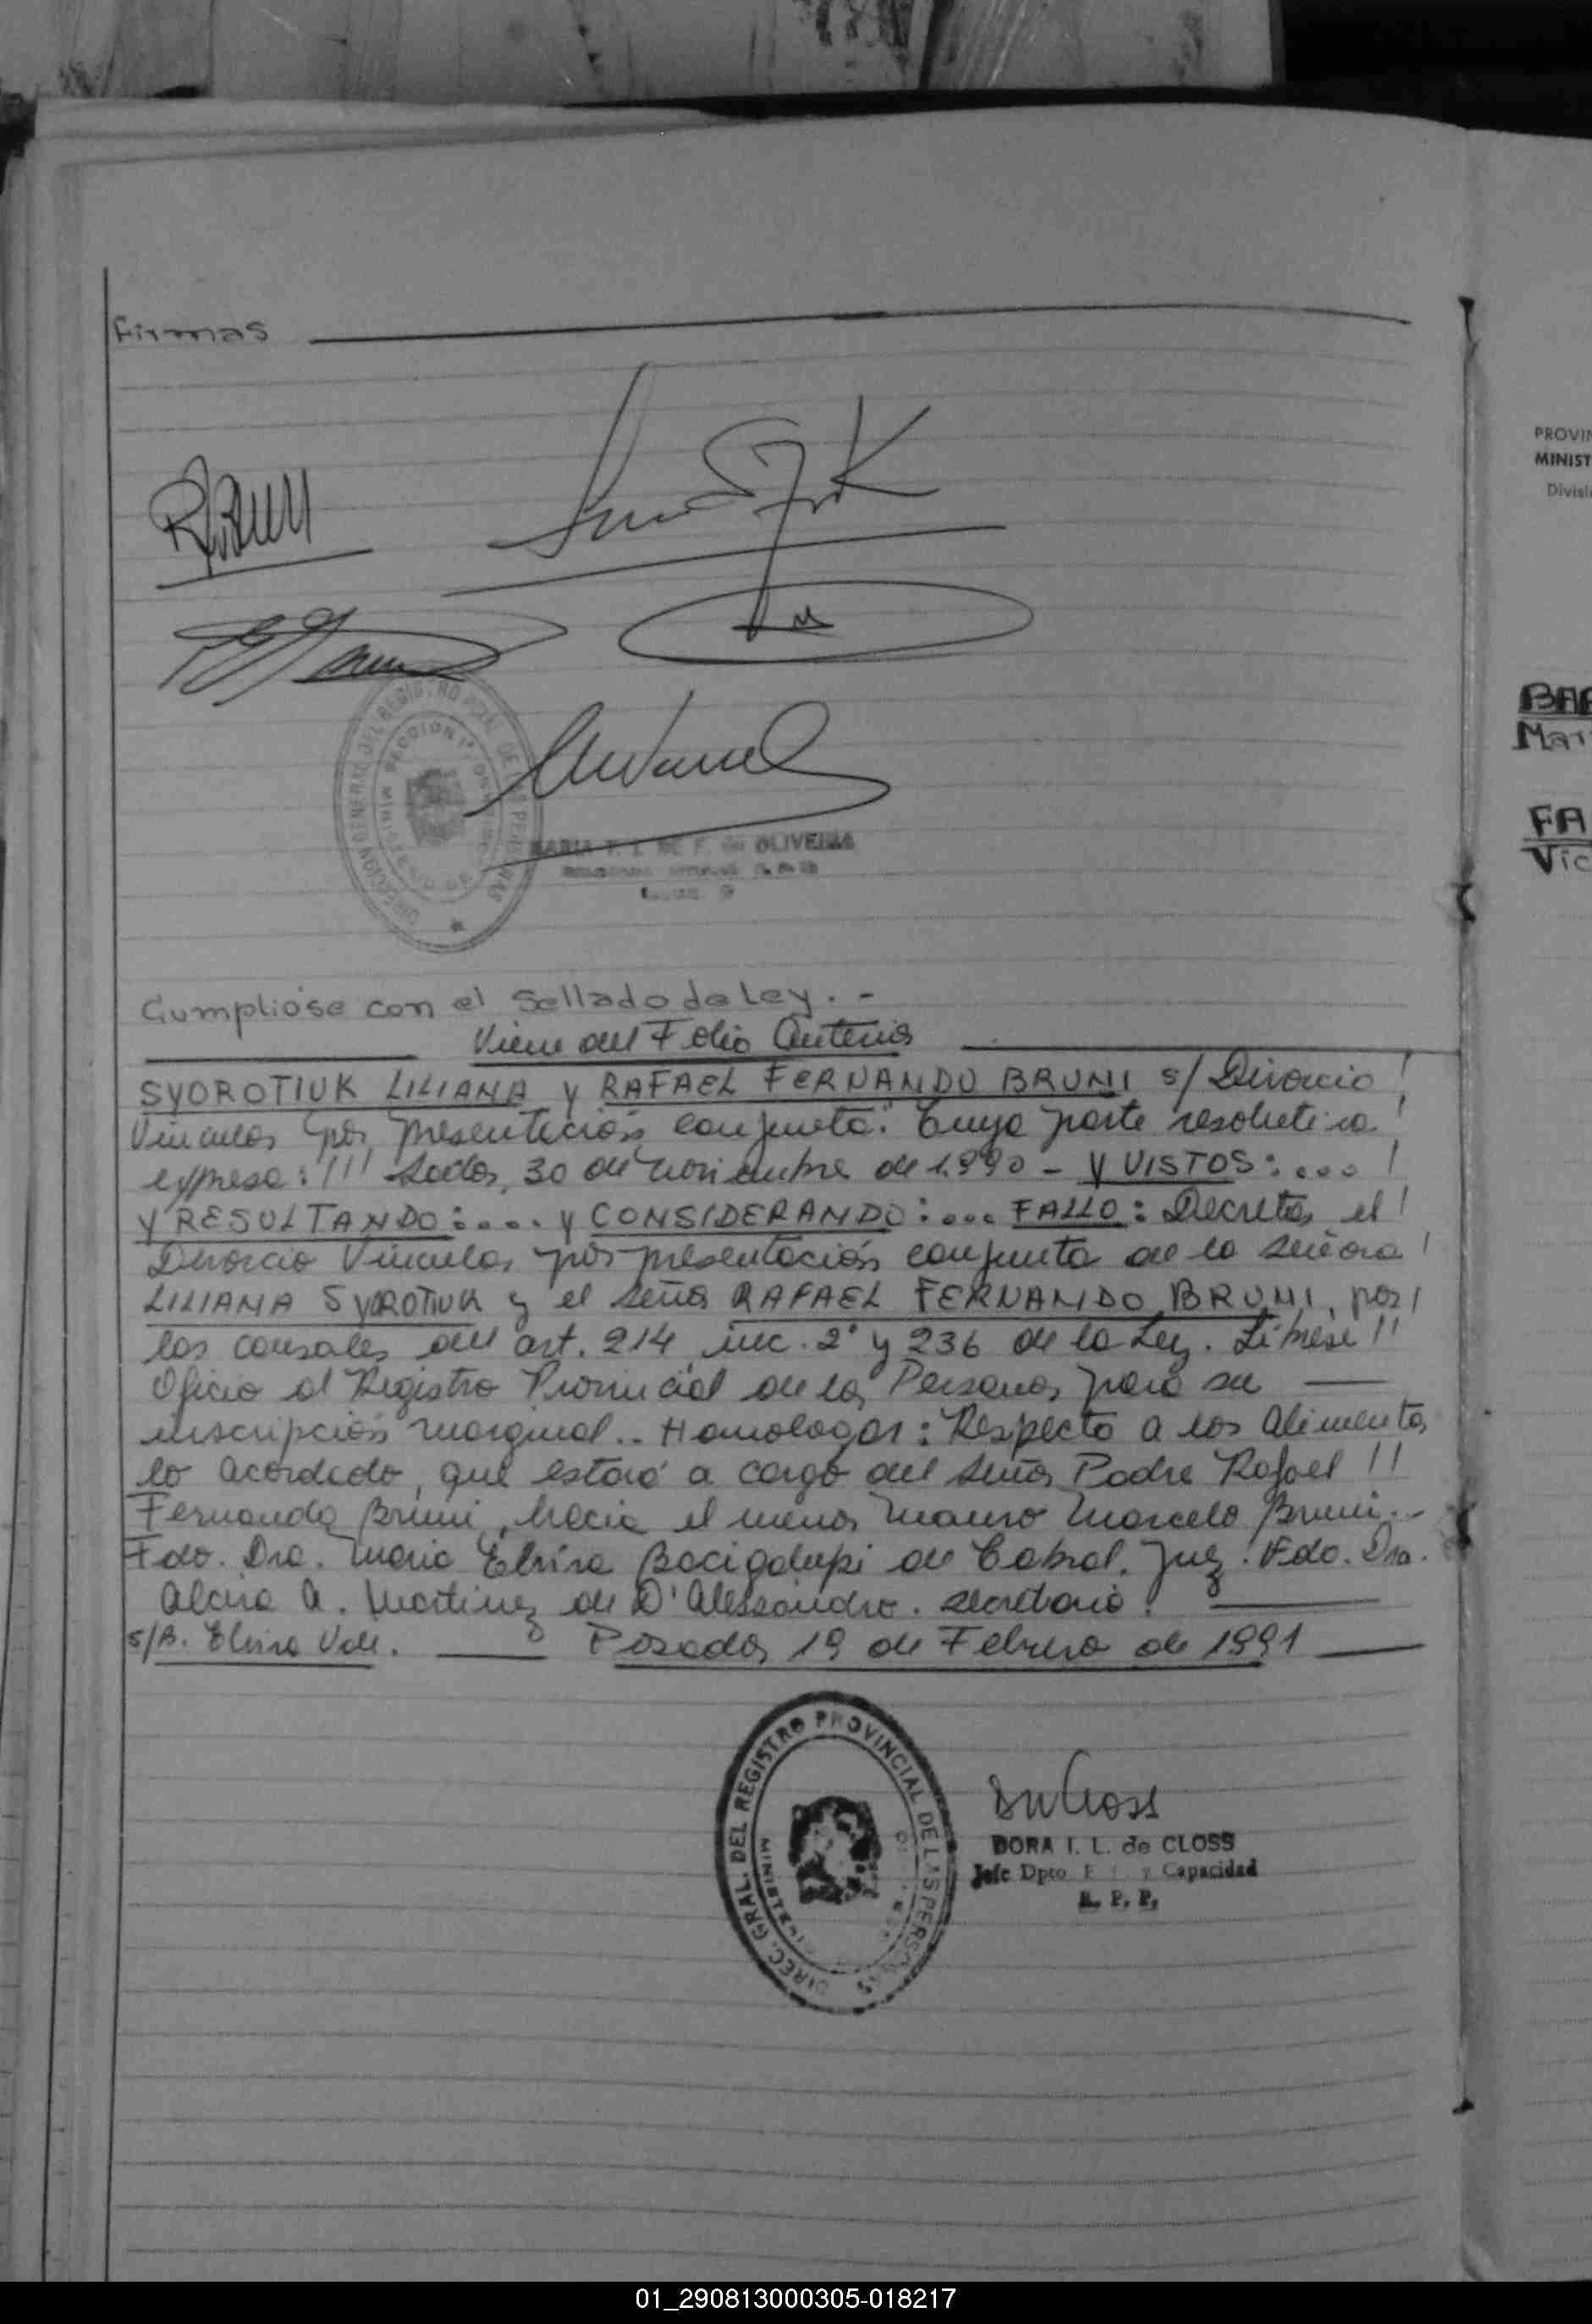 Firmas
RBruni
MARIA T. L. DE F. de OLIVEIRA
Cumplióse con el Sellado de Ley. -
Viene del Folio Anterior
SYOROTIUK LILIANA y RAFAEL FERNANDO BRUNI s/ Divorcio !
Vincular por presentación conjunta". Cuya parte resolutiva !
expresa: !!! Posadas, 30 de noviembre de 1.990 - Y VISTOS: ... !
Y RESULTANDO: .... y CONSIDERANDO: ... FALLO: Decretar el !
Divorcio Vincular por presentación conjunta de la señora !
LILIANA SYOROTIUK y el señor RAFAEL FERNANDO BRUNI, por !
las causales del art. 214 inc. 2° y 236 de la Ley. Líbrese !!
Oficio al Registro Provincial de las Personas para su
inscripción marginal.. Homologar: Respecto a los alimentos
lo acordado, que estará a cargo del señor Padre Rafael !!
Fernando Bruni, hacia el menor Mauro Marcelo Bruni.-
Fdo. Dra. Maria Elvira Bacigalupi de Cabral. Juez. Fdo. Dra.
Alcira A. Martinez de D'Alessandro. Secretaria.
s/B. Elvira Vale. Posadas 19 de Febrero de 1991
DIREC. GRAL. DEL REGISTRO PROVINCIAL DE LAS PERSONAS
DORA I. L. de CLOSS
Jefe Dpto y Capacidad
R. P. P.
PROVIN
MINIST
Divisi
BAR
Mar
FA
Vic
01_290813000305-018217